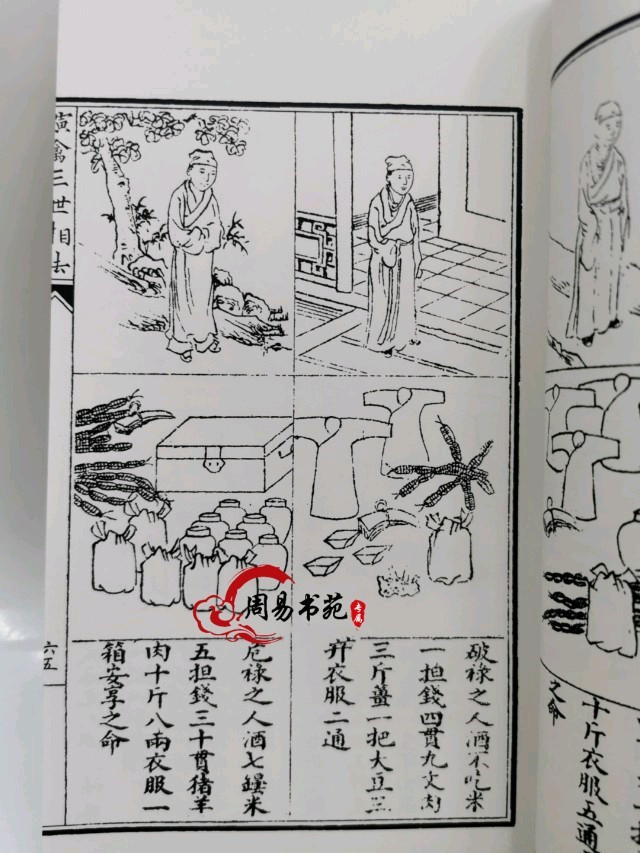 十斤衣服五通
之命
破祿之人酒不吃米
一担錢四貫九文肉
三斤薑一把大豆三
升衣服二通
危祿之人酒七罈米
五担錢三十貫猪羊
肉十斤八兩衣服一
箱安享之命
演禽三世相法
六五
周易书苑
专属